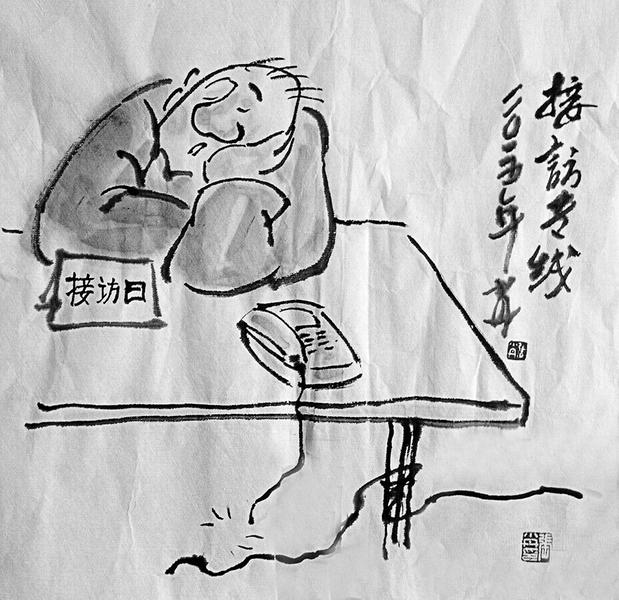 接訪专线
二〇一五年
接访日